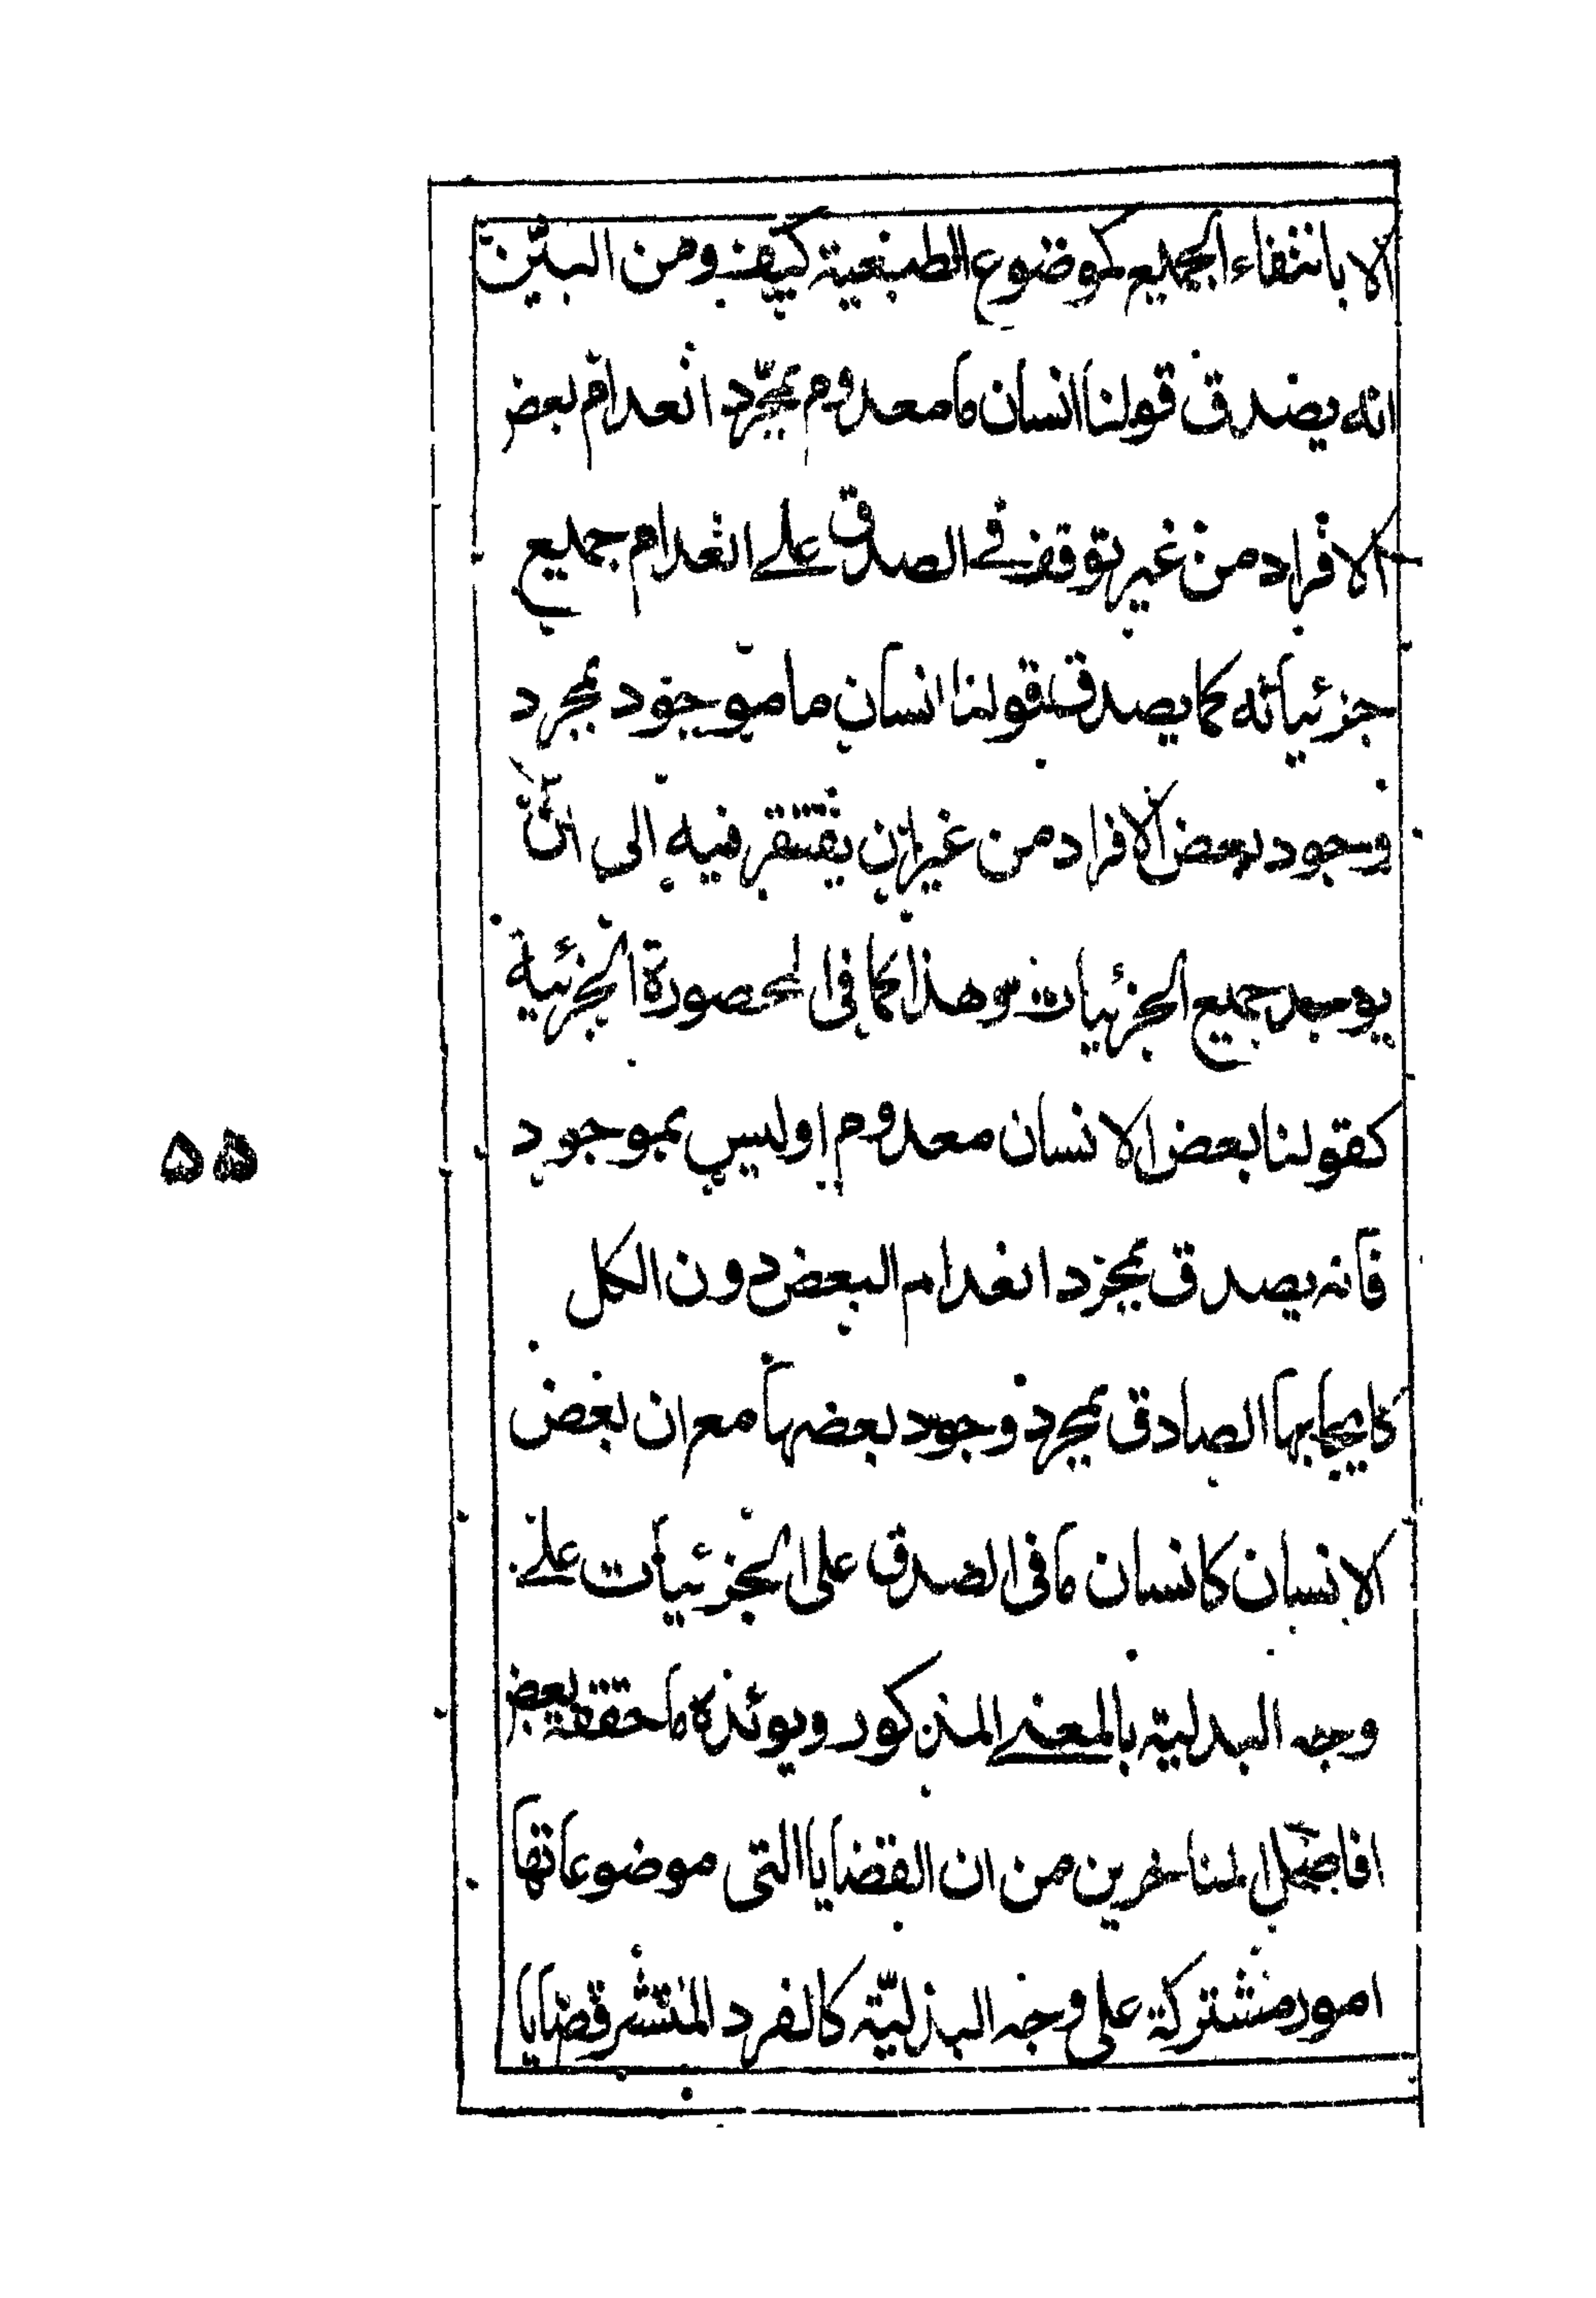 الا بانتفاء الجميع كموضوع الطبيعية كيف ومن البيّن
انه يصدق قولنا انسان ما معدوم بمجّرد انعدام بعض
الافراد من غير توقف فے الصدق علے انعدام جميع
جزئياته كما يصدق قولنا انسان ما موجود بمجرد
وجود بعض الافراد من غيران يفتقر فيه الى ان
يوجد جميع الجزئيات وهذا كما فى المحصورة الجزئية
كقولنا بعض الانسان معدوم اوليس بموجود
فانه يصدق بمجرد انعدام البعض دون الكل
كايجابها الصادق بمجرد وجود بعضها مع ان بعض
الانسان كانسان ما فى الصدق على الجزئيات علے
وجه البدلية بالمعنے المذكور ويوئده ما حققه بعض
افاضل المتاخرين من ان القضايا التى موضوعاتها
امور مشتركة على وجه البدليّة كالفرد المنتشر قضايا
۵۵